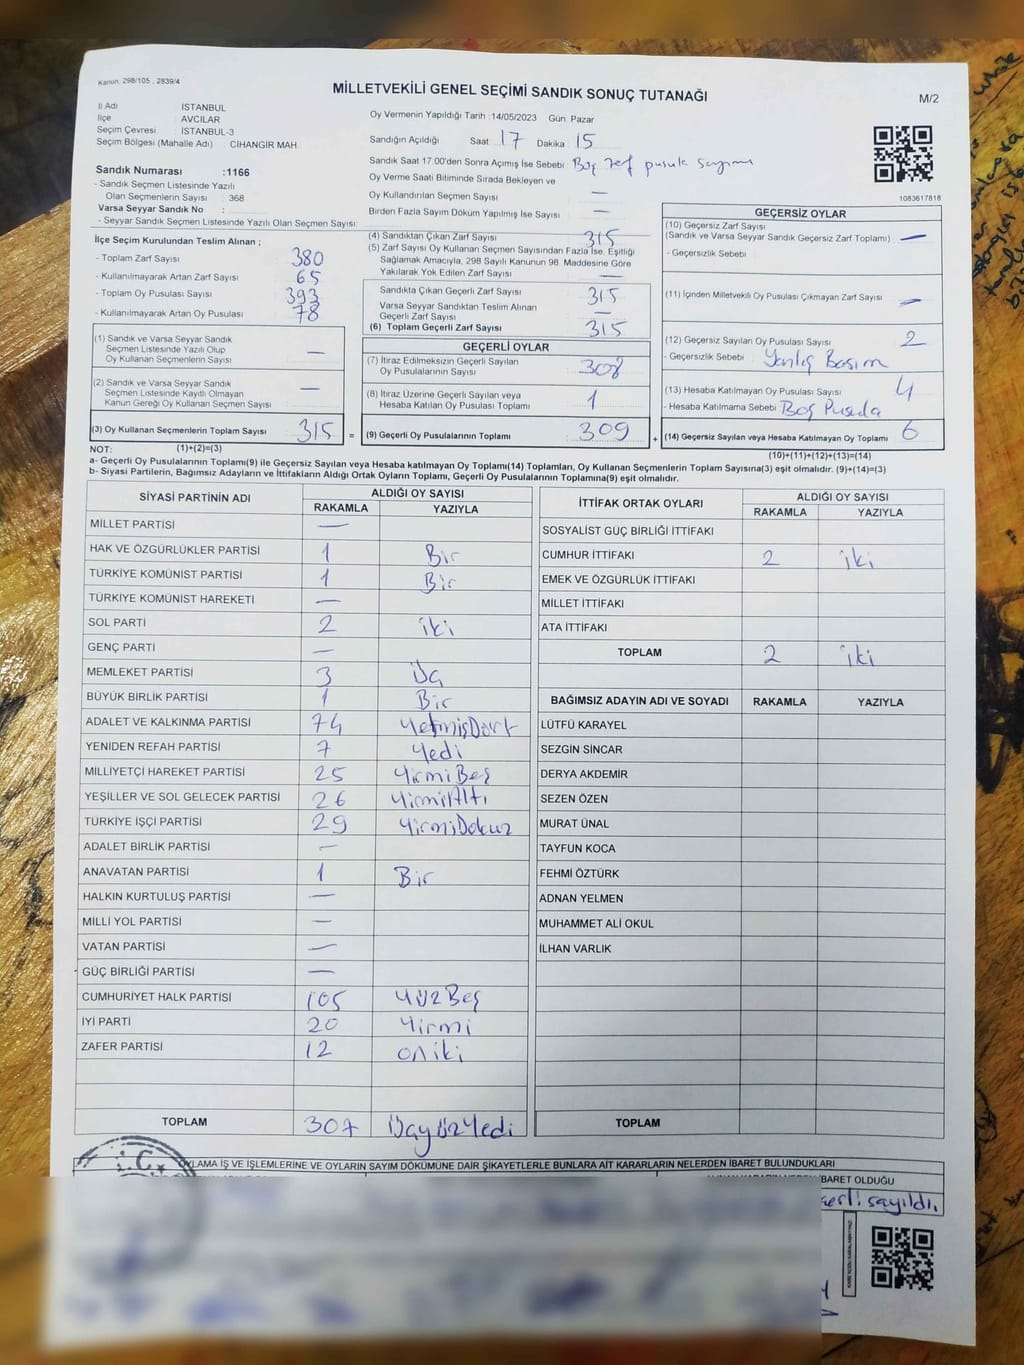 Kanun: 298/105 , 2839/4
MİLLETVEKİLİ GENEL SEÇİMİ SANDIK SONUÇ TUTANAĞI
M/2
İl Adı İSTANBUL
İlçe AVCILAR
Seçim Çevresi : İSTANBUL-3
Seçim Bölgesi (Mahalle Adı) : CİHANGİR MAH
Sandık Numarası :1166
- Sandık Seçmen Listesinde Yazılı
Olan Seçmenlerin Sayısı : 368
Varsa Seyyar Sandık No :
- Seyyar Sandık Seçmen Listesinde Yazılı Olan Seçmen Sayısı:
Oy Vermenin Yapıldığı Tarih : 14/05/2023 Gün: Pazar
Sandığın Açıldığı Saat 17 Dakika 15
Sandık Saat 17:00'den Sonra Açımış İse Sebebi : Boş zarf pusula sayımı
Oy Verme Saati Bitiminde Sırada Bekleyen ve
Oy Kullandırılan Seçmen Sayısı —
Birden Fazla Sayım Döküm Yapılmış İse Sayısı —
1083617818
İlçe Seçim Kurulundan Teslim Alınan ;
- Toplam Zarf Sayısı 380
- Kullanılmayarak Artan Zarf Sayısı 65
- Toplam Oy Pusulası Sayısı 393
- Kullanılmayarak Artan Oy Pusulası 78
(1) Sandık ve Varsa Seyyar Sandık
Seçmen Listesinde Yazılı Olup
Oy Kullanan Seçmenlerin Sayısı : —
(2) Sandık ve Varsa Seyyar Sandık
Seçmen Listesinde Kayıtlı Olmayan
Kanun Gereği Oy Kullanan Seçmen Sayısı : —
(3) Oy Kullanan Seçmenlerin Toplam Sayısı : 315 =
(4) Sandıktan Çıkan Zarf Sayısı 315
(5) Zarf Sayısı Oy Kullanan Seçmen Sayısından Fazla İse, Eşitliği
Sağlamak Amacıyla, 298 Sayılı Kanunun 98. Maddesine Göre
Yakılarak Yok Edilen Zarf Sayısı : —
Sandıkta Çıkan Geçerli Zarf Sayısı : 315
Varsa Seyyar Sandıktan Teslim Alınan
Geçerli Zarf Sayısı : —
(6) Toplam Geçerli Zarf Sayısı : 315
GEÇERLİ OYLAR
(7) İtiraz Edilmeksizin Geçerli Sayılan
Oy Pusulalarının Sayısı : 308
(8) İtiraz Üzerine Geçerli Sayılan veya
Hesaba Katılan Oy Pusulası Toplamı : 1
(9) Geçerli Oy Pusulalarının Toplamı : 309 +
GEÇERSİZ OYLAR
(10) Geçersiz Zarf Sayısı
(Sandık ve Varsa Seyyar Sandık Geçersiz Zarf Toplamı) : —
- Geçersizlik Sebebi :
(11) İçinden Milletvekili Oy Pusulası Çıkmayan Zarf Sayısı : —
(12) Geçersiz Sayılan Oy Pusulası Sayısı : 2
- Geçersizlik Sebebi : Yanlış Basım
(13) Hesaba Katılmayan Oy Pusulası Sayısı : 4
- Hesaba Katılmama Sebebi : Boş Pusula
(14) Geçersiz Sayılan veya Hesaba Katılmayan Oy Toplamı : 6
NOT: (1)+(2)=(3)
(10)+(11)+(12)+(13)=(14)
a- Geçerli Oy Pusulalarının Toplamı(9) ile Geçersiz Sayılan veya Hesaba katılmayan Oy Toplamı(14) Toplamları, Oy Kullanan Seçmenlerin Toplam Sayısına(3) eşit olmalıdır. (9)+(14)=(3)
b- Siyasi Partilerin, Bağımsız Adayların ve İttifakların Aldığı Ortak Oyların Toplamı, Geçerli Oy Pusulalarının Toplamına(9) eşit olmalıdır.
SİYASİ PARTİNİN ADI ALDIĞI OY SAYISI
RAKAMLA YAZIYLA
MİLLET PARTİSİ —
HAK VE ÖZGÜRLÜKLER PARTİSİ 1 Bir
TÜRKİYE KOMÜNİST PARTİSİ 1 Bir
TÜRKİYE KOMÜNİST HAREKETİ —
SOL PARTİ 2 iki
GENÇ PARTİ —
MEMLEKET PARTİSİ 3 Üç
BÜYÜK BİRLİK PARTİSİ 1 Bir
ADALET VE KALKINMA PARTİSİ 74 YetmişDört
YENİDEN REFAH PARTİSİ 7 Yedi
MİLLİYETÇİ HAREKET PARTİSİ 25 YirmiBeş
YEŞİLLER VE SOL GELECEK PARTİSİ 26 YirmiAltı
TÜRKİYE İŞÇİ PARTİSİ 29 YirmiDokuz
ADALET BİRLİK PARTİSİ —
ANAVATAN PARTİSİ 1 Bir
HALKIN KURTULUŞ PARTİSİ —
MİLLİ YOL PARTİSİ —
VATAN PARTİSİ —
GÜÇ BİRLİĞİ PARTİSİ —
CUMHURİYET HALK PARTİSİ 105 YüzBeş
İYİ PARTİ 20 Yirmi
ZAFER PARTİSİ 12 oniki
TOPLAM 307 ÜçyüzYedi
İTTİFAK ORTAK OYLARI ALDIĞI OY SAYISI
RAKAMLA YAZIYLA
SOSYALİST GÜÇ BİRLİĞİ İTTİFAKI
CUMHUR İTTİFAKI 2 iki
EMEK VE ÖZGÜRLÜK İTTİFAKI
MİLLET İTTİFAKI
ATA İTTİFAKI
TOPLAM 2 iki
BAĞIMSIZ ADAYIN ADI VE SOYADI RAKAMLA YAZIYLA
LÜTFÜ KARAYEL
SEZGİN SİNCAR
DERYA AKDEMİR
SEZEN ÖZEN
MURAT ÜNAL
TAYFUN KOCA
FEHMİ ÖZTÜRK
ADNAN YELMEN
MUHAMMET ALİ OKUL
İLHAN VARLIK
TOPLAM
OYLAMA İŞ VE İŞLEMLERİNE VE OYLARIN SAYIM DÖKÜMÜNE DAİR ŞİKAYETLERLE BUNLARA AİT KARARLARIN NELERDEN İBARET BULUNDUKLARI
İBARET OLDUĞU
sayıldı.